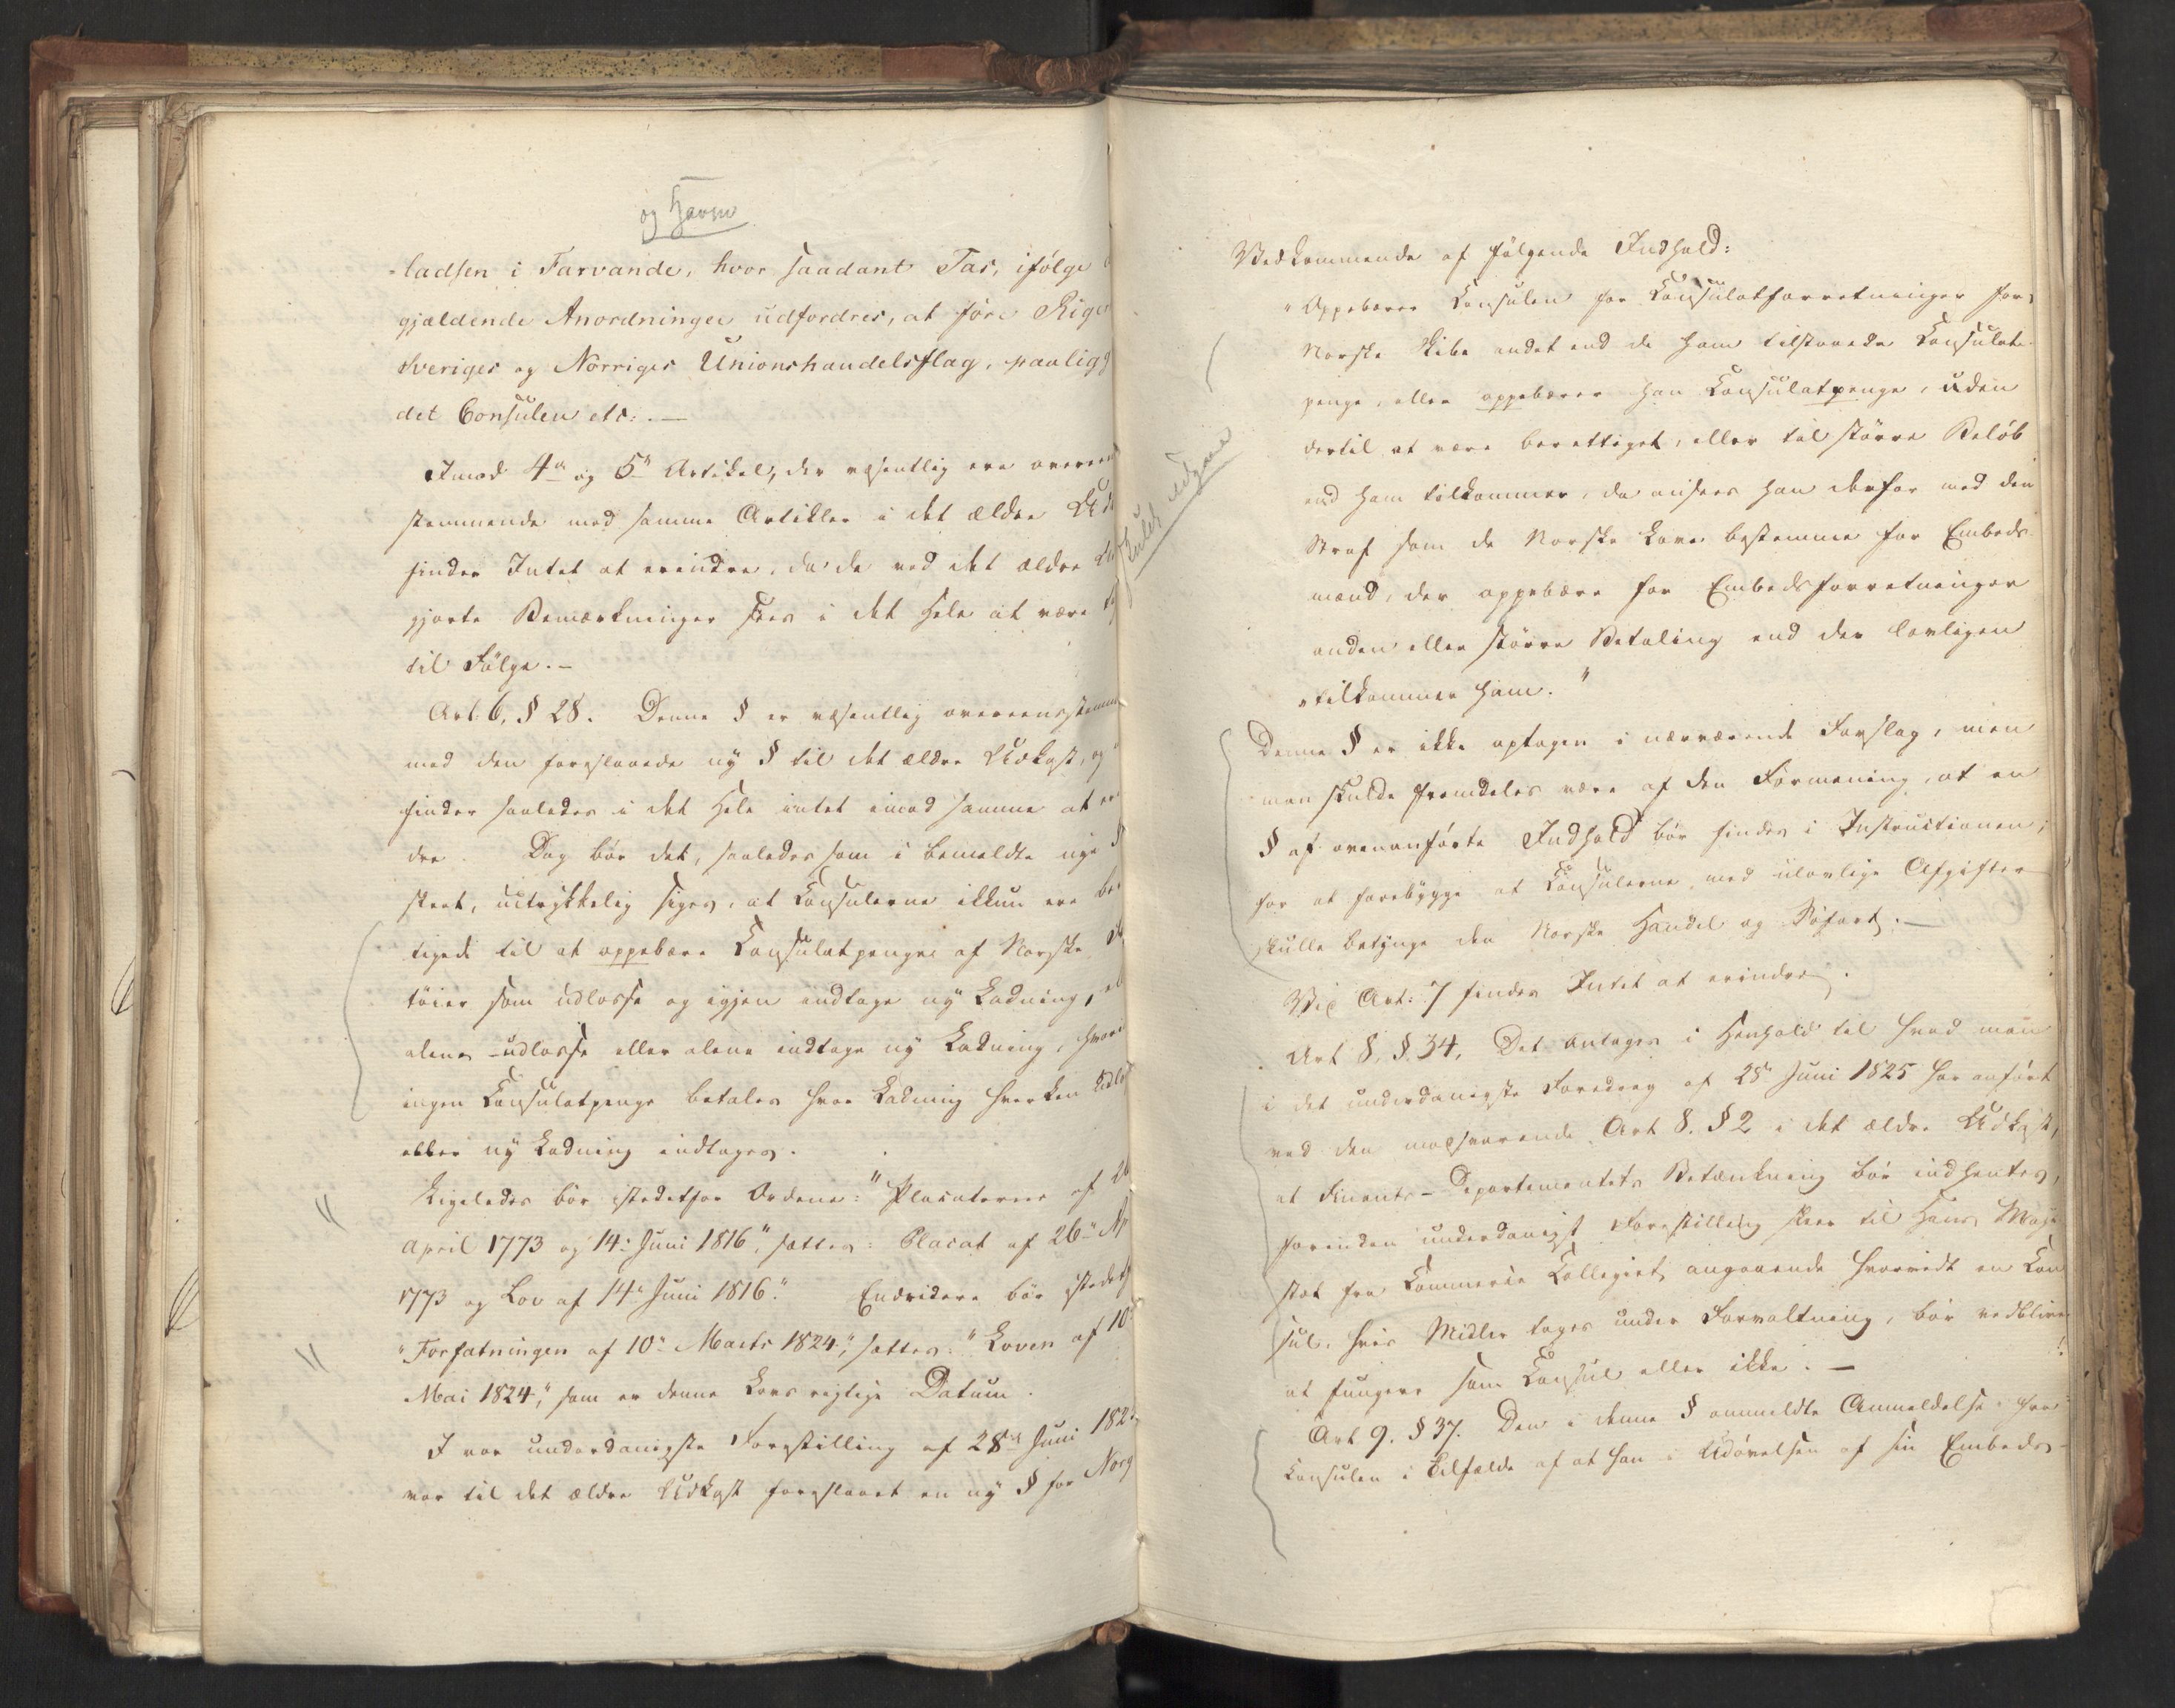 og Havne
-ladsen i Farvande, hvor saadant Pas, ifølge
gjældende Anordninger udfordres, at føre Rigerne
Sveriges og Norriges Unionshandelsflag, paaligger
det Consulen etc: . —
Imod 4de og 5te Artikel, der væsentlig ere overeens
stemmende med samme Artikler i det ældre Ud
findes Intet at erindre, da de ved det ældre
gjorte Bemærkninger sees i det Hele at være
til Følge. —
Art. 6, § 28. Denne § er væsentlig overeensstemm
med den foreslaaede ny § til det ældre Udkast, og
findes saaledes i det Hele intet imod samme at er
dre. Dog bør det, saaledes som i bemeldte nye §
skeet, udtrykkelig siges, at Consulerne ikkun ere be
tigede til at oppebære Consulatpenge af Norske
tøier som udlosse og igjen indtage ny Ladning,
alene udlosse eller alene indtage ny Ladning, hvori
ingen Consulatpenge betales hvor Ladning hverken udlos
eller ny Ladning indtages.
Ligeledes bør istedetfor Ordene: "Placaterne af 26
April 1773 og 14: Juni 1816", sættes: Placat af 26de Ap
1773 og Lov af 14de Juni 1816". Endvidere bør istedetf
"Forfatningen af 10de Marts 1824", sættes: "Loven af 10
Mai 1824", som er denne Lovs rigtige Datum.
I vor underdanigste Forestilling af 28de Juni 1825
var til det ældre Udkast foreslaaet en ny § for Norg
Vedkommende af følgende Indhold:
"Oppebærer Consulen for Consulatforretninger for
Norske Skibe andet end de ham tilstaaede Consulat-
penge, eller oppebærer han Consulatpenge, uden
dertil at være berettiget, eller til større Beløb
end ham tilkommer, da ansees han derfor med den
Straf som de Norske Love bestemme for Embeds-
mænd, der oppebære for Embedsforretninger
anden eller større Betaling end der lovligen
"tilkommer ham."
Denne § er ikke optagen i nærværende Forslag, men
man skulde fremdeles være af den Formening, at en
§ af ovenanførte Indhold bør findes i Instructionen,
for at forebygge at Consulerne med ulovlige Afgifter
skulle betynge den Norske Handel og Søfart. —
Ved Art: 7 findes Intet at erindre.
Art 8, § 34. Det antages i Henhold til hvad man
i det underdanigste Foredrag af 28de Juni 1825 har anført
ved den modsvarende Art 8. § 2 i det ældre Udkast,
at Finants-Departementets Betænkning bør indhentes,
forinden underdanigst Forestilling skeer til Hans Maje
stæt fra Commerce Collegiet angaaende hvorvidt en Con
sul, hvis Midler tages under Forvaltning, bør vedblive
at fungere som Consul eller ikke. —
Art 9. § 37. Den i denne § ommeldte Anmeldelse fra
Consulen i Tilfælde af at han i Udøvelsen af sin Embeds-